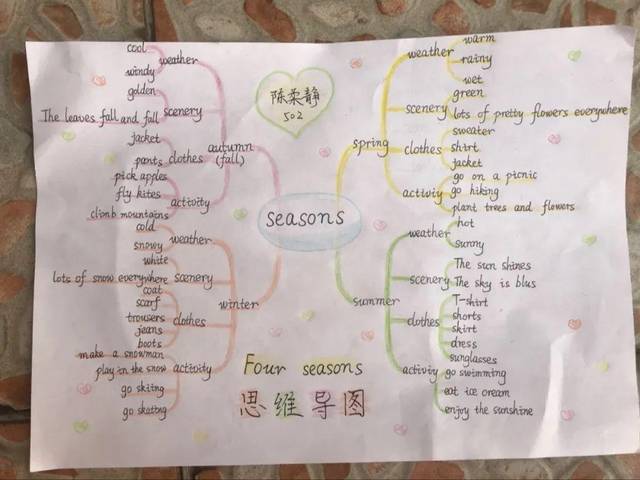 陈柔静
502
seasons
Four seasons
思维导图
spring
weather
warm
rainy
wet
scenery
green
lots of pretty flowers everywhere
clothes
sweater
shirt
jacket
activiy
go on a picnic
go hiking
plant trees and flowers
summer
weather
hot
sunny
scenery
The sun shines
The sky is blus
clothes
T-shirt
shorts
skirt
dress
sunglasses
activiy
go swimming
eat ice cream
enjoy the sunshine
autumn
(fall)
weather
cool
windy
scenery
golden
The leaves fall and fall
clothes
jacket
pants
activity
pick apples
fly kites
climb mountains
winter
weather
cold
snowy
scenery
white
lots of snow everywhere
clothes
coat
scarf
trousers
jeans
boots
activity
make a snowman
play in the snow
go skiing
go skating